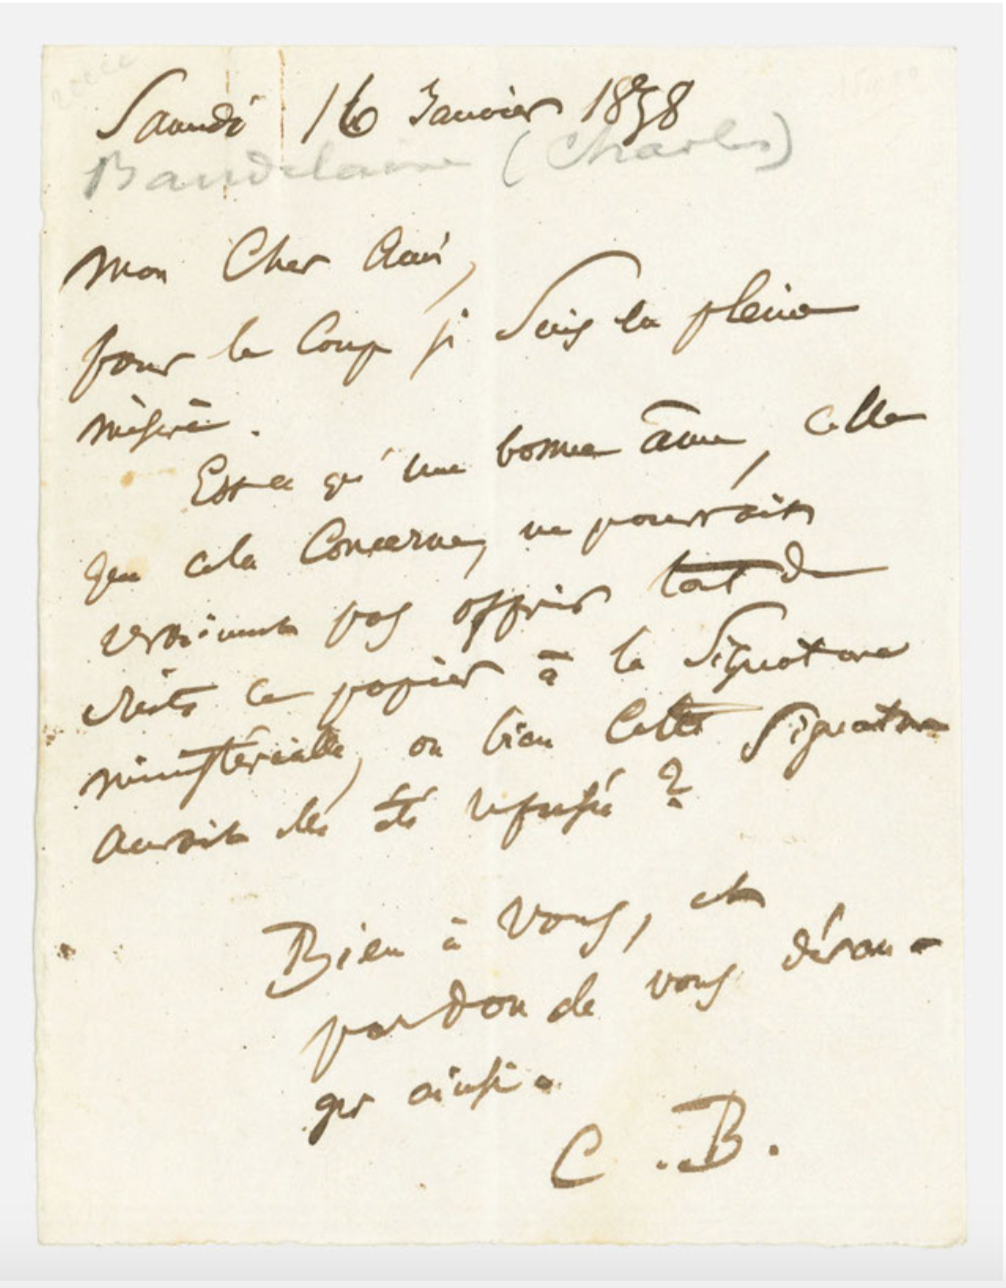 Samedi 16 Janvier 1858
Baudelaire (Charles)
Mon Cher Ami,
pour le Coup je suis en pleine
misère.
Est-ce qu'une bonne âme, celle
que cela Concerne, ne pourrait
vraiment pas offrir tout de
suite ce papier à la Signature
ministérielle, ou bien Cette Signature
aurait-elle été refusée ?
Bien à vous, et
pardon de vous déran-
ger ainsi.
C. B.